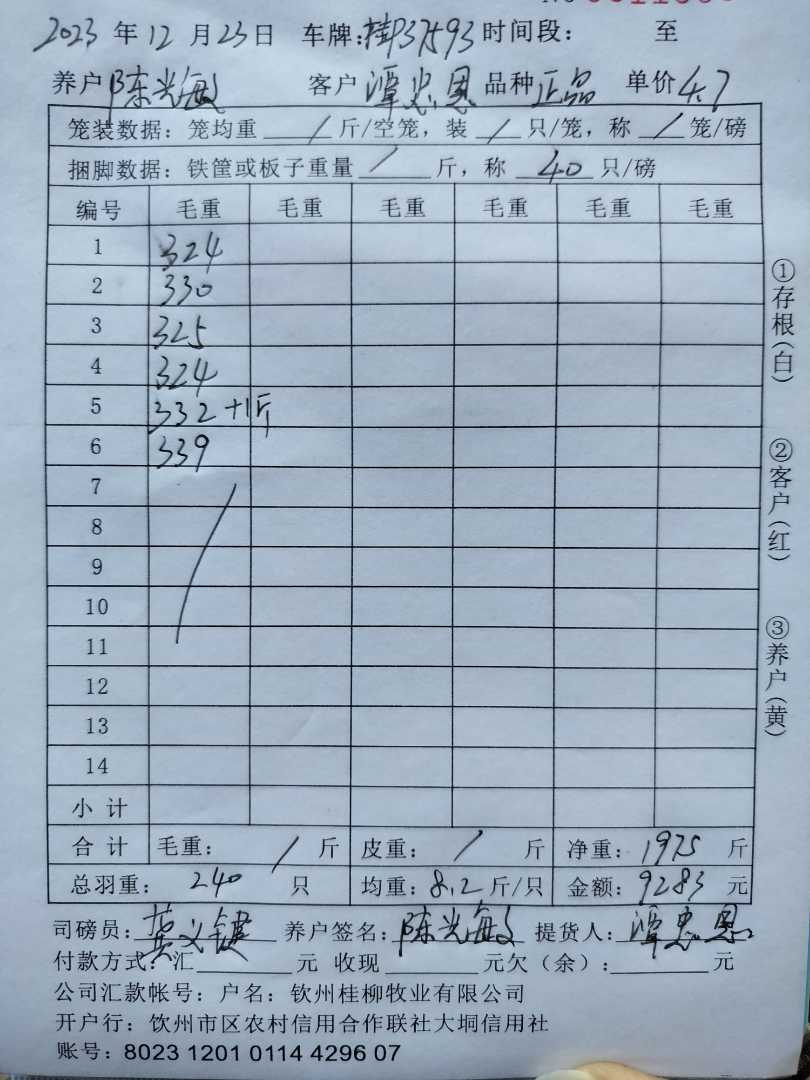 2023 年 12 月 23 日 车牌: 37593 时间段: 至
养户 陈光敏 客户 潭忠恩 品种 正品 单价 4.7
笼装数据: 笼均重 / 斤/空笼, 装 / 只/笼, 称 / 笼/磅
捆脚数据: 铁筐或板子重量 / 斤, 称 40 只/磅
编号 毛重 毛重 毛重 毛重 毛重 毛重
1 324
2 330
3 325
4 324
5 332 +1斤
6 339
7
8
9
10
11
12
13
14
小 计
合 计 毛重: / 斤 皮重: / 斤 净重: 1975 斤
总羽重: 240 只 均重: 8.2 斤/只 金额: 9283 元
司磅员: 黄义键 养户签名: 陈光敏 提货人: 潭忠恩
付款方式: 汇 元 收现 元欠（余）: 元
公司汇款帐号: 户名: 钦州桂柳牧业有限公司
开户行: 饮州市区农村信用合作联社大垌信用社
账号: 8023 1201 0114 4296 07
①存根(白)
②客户(红)
③养户(黄)